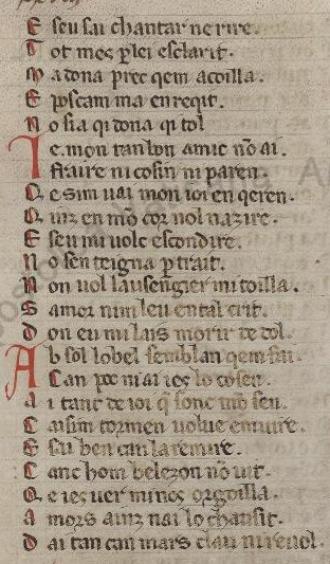 E seu sai chantar ne rire.
T ot mes p lei esclarit.
M a dona prec qem acoilla.
E pos cam ma enreqit.
N o sia qi dona qi tol
I e. mon tan bon amic nō ai.
F fraire ni cosin ni paren.
Q e sim uai mon ioi en qeren.
Q inz en mō cor nol nazire.
E seu mi uole escondire.
N o sen teigna p trait.
N on uol lausengier mi toilla.
S amor nim leu en tal crit.
D on eu mi lais morir de dol.
A b sol lo bel semblan qem fai.
C an poc ni ai ies lo cosen.
A i tanc de ioi q̄ sonc mō sen.
C aisim tormen uolue en uire.
E sai ben can la remire.
C anc hom belezon nō uit.
Q e ies uer mi nos orgoilla.
A mors ainz nai lo chausit.
D ai tan can mars clau ni reuol.